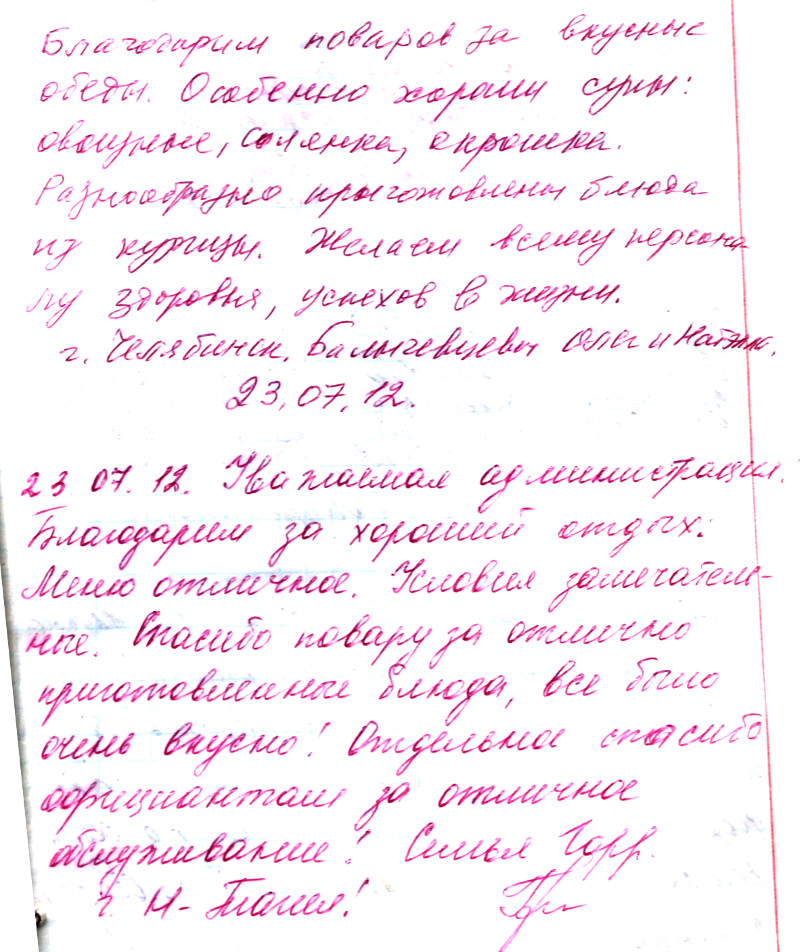 Благодарим поваров за вкусные
обеды. Особенно хороши супы:
овощные, солянка, окрошка.
Разнообразно приготовлены блюда
из курицы. Желаем всему персона-
лу здоровья, успехов в жизни.
г. Челябинск. и
23.07.12.
23 07.12. Уважаемая администрация.
Благодарим за хороший отдых.
Меню отличное. Условия замечатель-
ные. Спасибо повару за отлично
приготовленные блюда, все было
очень вкусно! Отдельное спасибо
официантам за отличное
обслуживание! Семья Горр.
г. Н-Тагил!